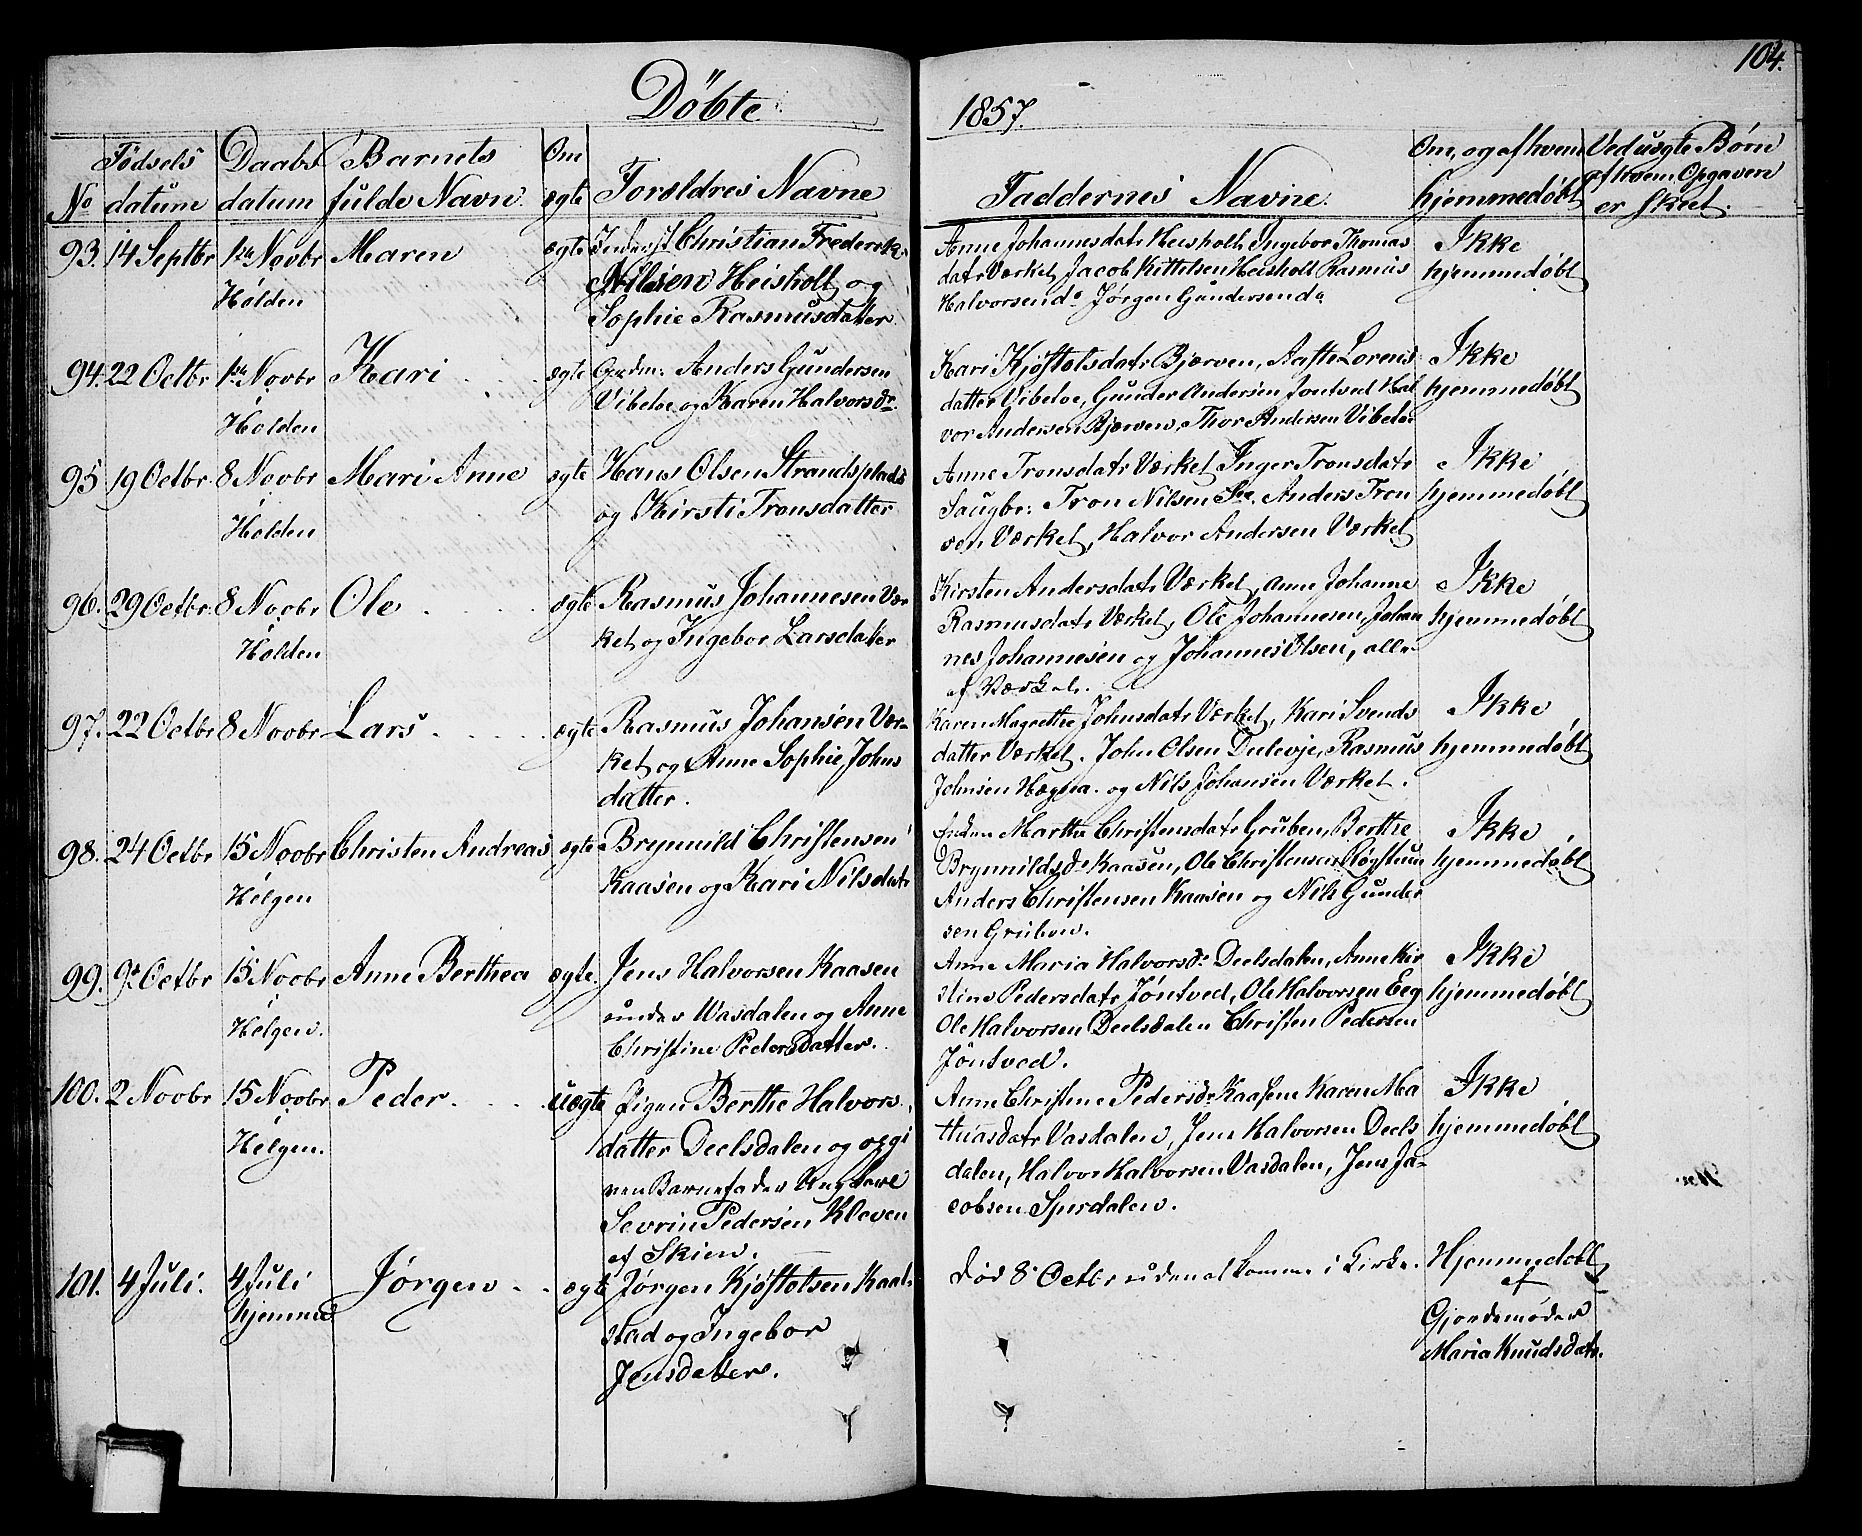 104.
Döbte
1857.
No
Födsels datum
Daabs datum
Barnets fulde Navn
Om ægte
Forældres Navne
Faddernes Navne.
Om, og af hvem hjemmedøbt
Ved uægte Børn af hvem Opgaven er skeet.
93. 14 Septbr 1ste Novbr Holden Maren ægte
Inderst Christian Frederek
Nilsen Heisholt og
Sophie Rasmusdatter
Anne Johannesdatr Heisholt, Ingebor Thomas
datr Værket, Jacob Kittelsen Heisholt Rasmus
Halvorsen do Jørgen Gundersen do
Ikke
hjemmedøbt
94. 22 Octbr 1ste Novbr Holden Kari ægte
Grdm: Anders Gundersen
Vibetoe og Karen Halvorsdr
Kari Kjöstolsdatr Bjerven, Aaste Lorens
datter Vibetoe, Gunder Andersen Jontved Hal
vor Andersen Bjerven, Thor Andersen Vibetoe
Ikke
hjemmedøbt
95 19 Octbr 8 Novbr Holden Mari Anne ægte
Hans Olsen Strandsplads
og Kirsti Tronsdatter
Anne Tronsdatr Værket, Inger Tronsdatr
Saugbr: Tron Nilsen Anders Tron
sen Værket, Halvor Andersen Værket
Ikke
hjemmedøbt
96. 29 Octbr. 8 Novbr Holden Ole ægte
Rasmus Johannesen Vær
ket og Ingebor Larsdatter
Kirsten Andersdatr Værket, Anne Johanne
Rasmusdatr Værket, Ole Johannesen, Johan
nes Johannesen og Johannes Olsen, alle
af Værket.
Ikke
hjemmedøbt
97. 22 Octbr 8 Novbr Lars ægte
Rasmus Johansen Vær-
ket og Anne Sophie Johns
datter.
Karen Magrethe Johnsdatr Værket, Kari Svends
datter Værket. John Olsen Dulevje, Rasmus
Johnsen Hægna og Nils Johansen Værket.
Ikke
hjemmedøbt
98. 24 Octbr 15 Novbr Helgen Christen Andreas ægte
Brynnild Christensen
Kaasen og Kari Nilsdatr
Enken Marthe Christensdatr Gruben, Berthe
Brynnildsdr Kaasen, Ole Christensen
Anders Christensen Kaasen og Nils Gunder
sen Gruben.
Ikke
hjemmedøbt
99. 9de Octbr 15 Novbr Helgen. Anne Berthea ægte.
Jens Halvorsen Kaasen
under Wasdalen og Anne
Christine Pedersdatter.
Anne Maria Halvorsdr Deelsdalen, Anne Kir
stine Pedersdatr Jöntved, Ole Halvorsen Eeg
Ole Halvorsen Deelsdalen Christen Pedersen
Jöntved.
Ikke
hjemmedøbt
100. 2 Novbr 15 Novbr Helgen. Peder uægte
Pigen Berthe Halvors
datter Deelsdalen og opgi
ven Barnefader Ungkarl
Sevrin Pedersen Kleven
af Skien.
Anne Christine Pedersdr Kaasene Karen Ma
thiasdatr Vasdalen, Jens Halvorsen Deels
dalen, Halvor Halvorsen Vasdalen, Jens Ja-
cobsen Spirdalen.
Ikke
hjemmedøbt
101. 4 Juli. 4 Juli hjemme Jørgen ægte
Jørgen Kjöstolsen Kaal-
stad og Ingebor
Jensdatter.
død 8 Octbr uden at komme i Kirke.
Hjemmedøbt
af
Gjordemoder
Maria Knudsdatr.